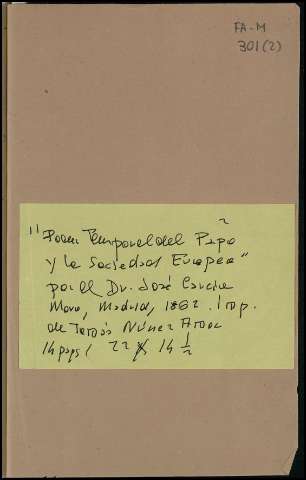 FA-M
301(2)
"Poder Temporal del Papa
y la Sociedad Europea"
por el Dr. José García
Mora, Madrid, 1862. imp.
de Tomás Núñez Amor
14 pags / 22 x 14 1/2